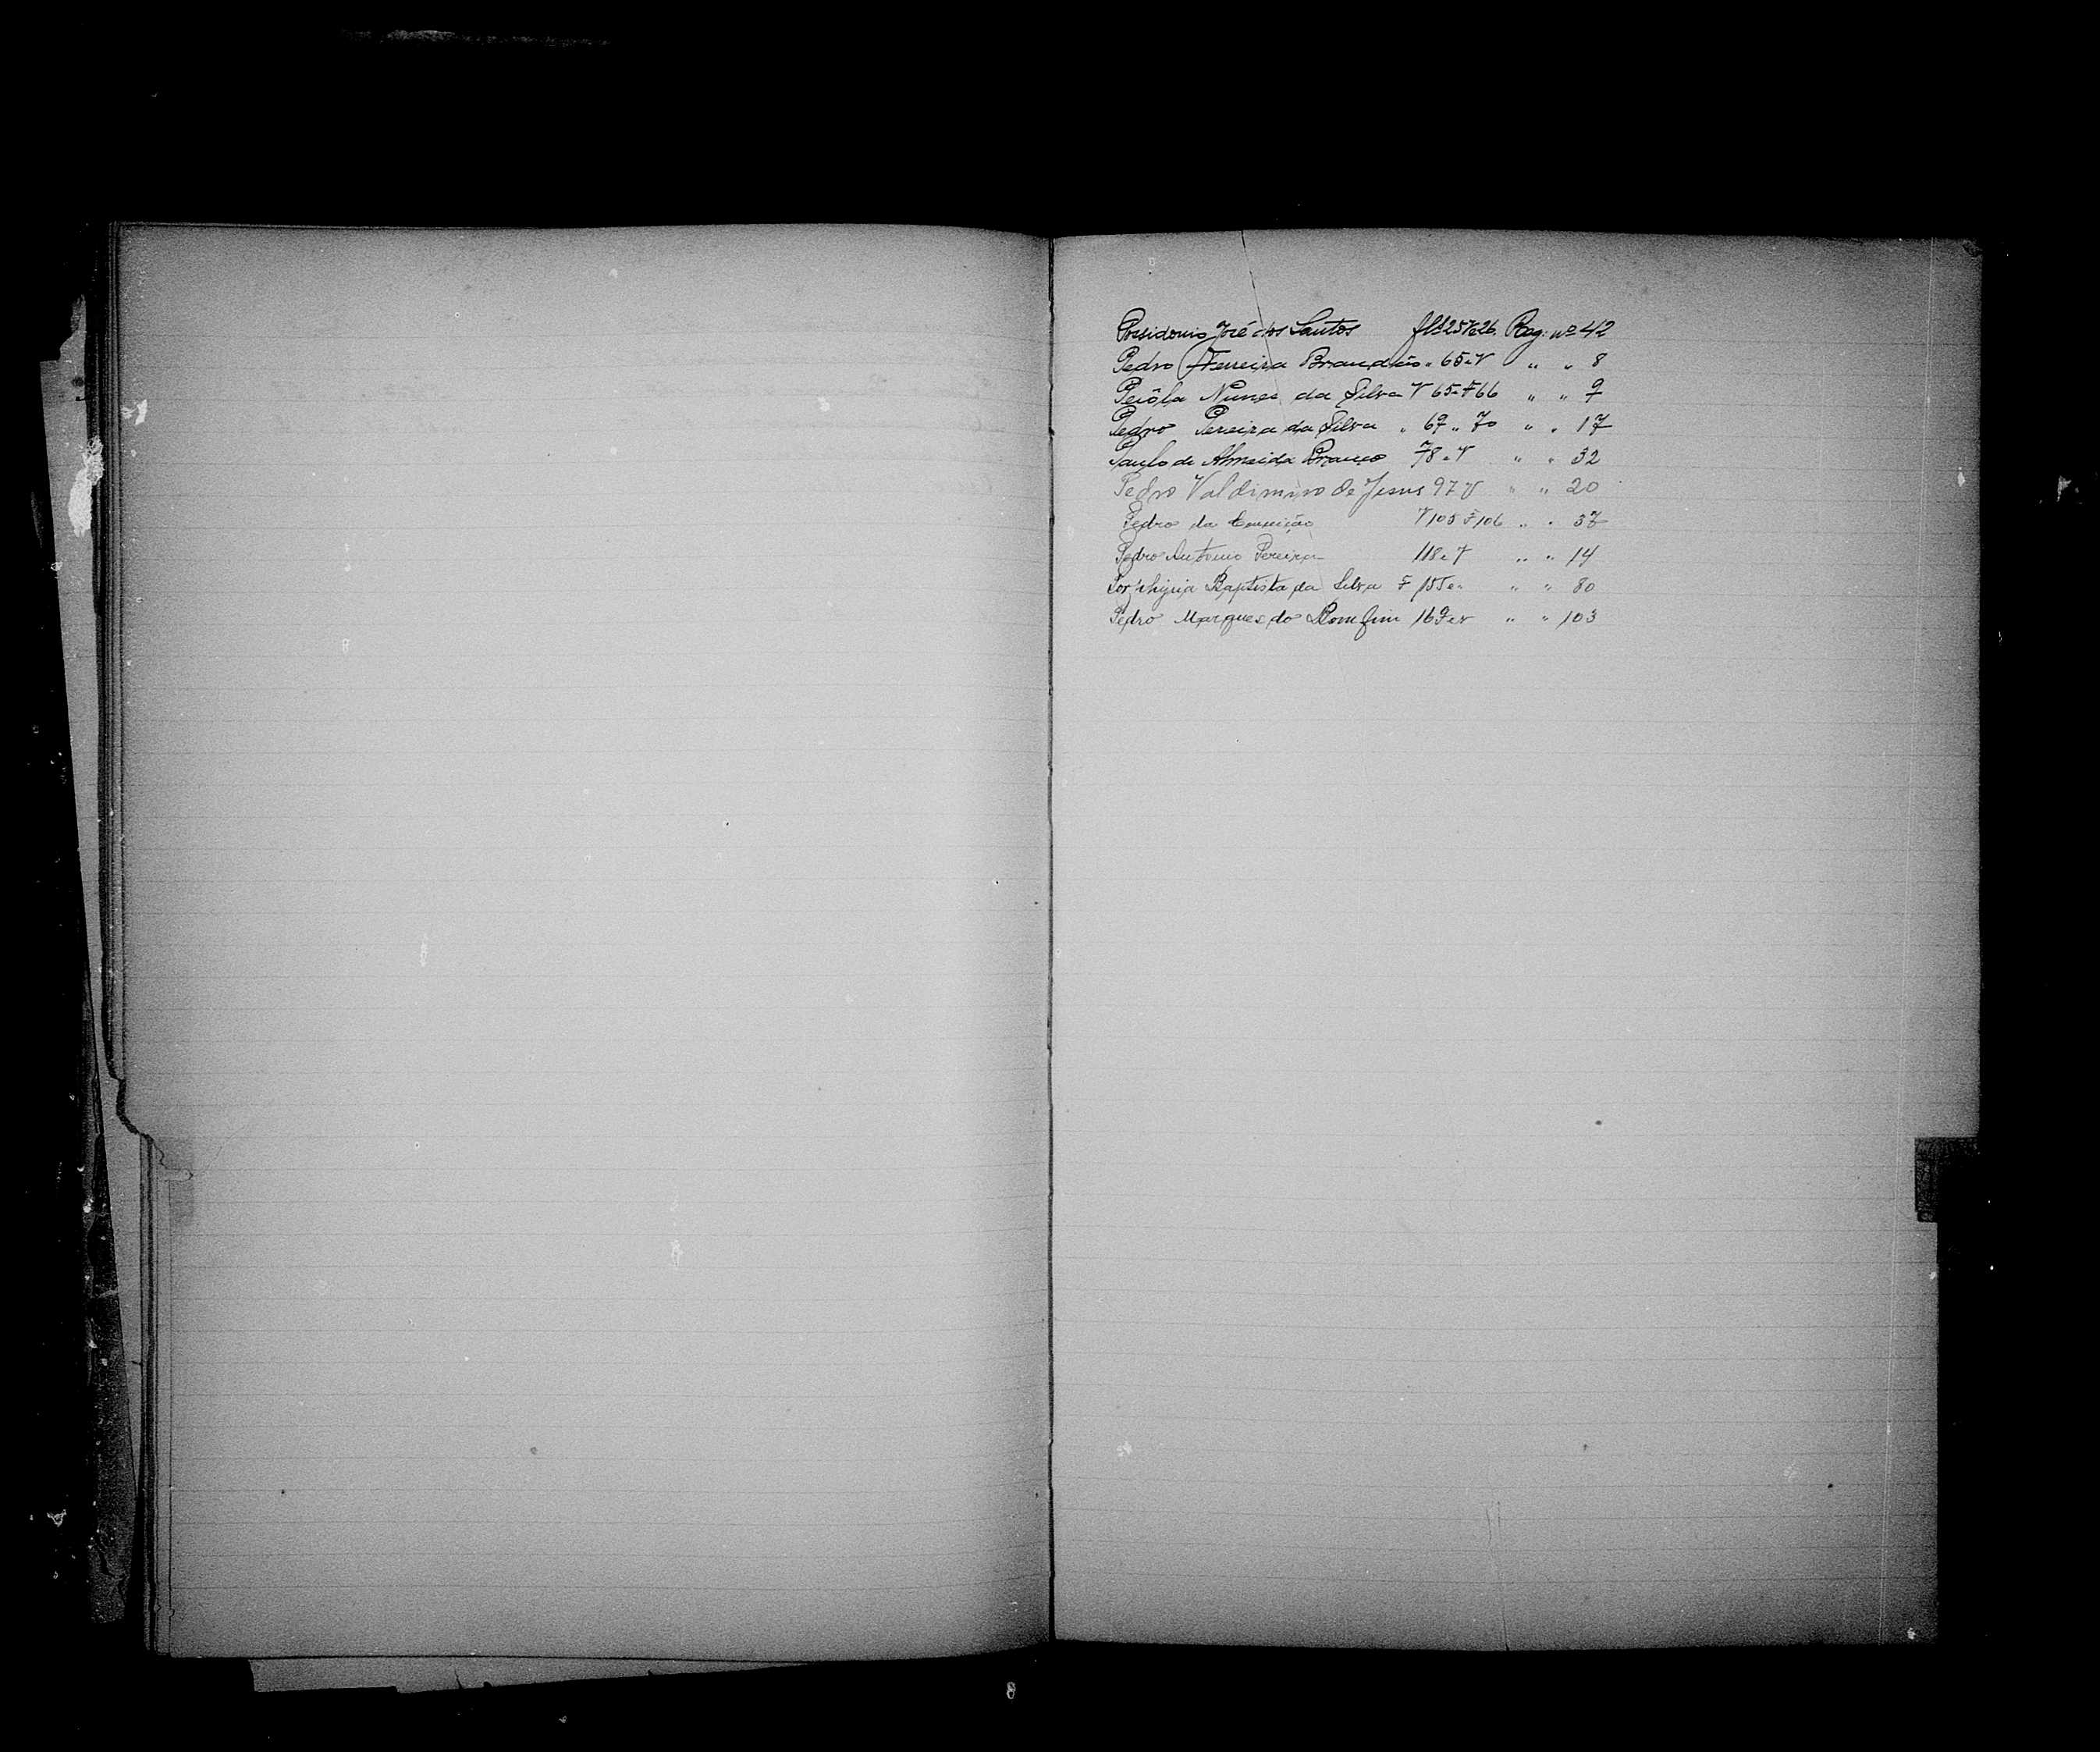 Possidonio José dos Santos fls 25 V e 26. Reg: nº 42
Pedro Ferreira Brandão " 65 e V " " 8
Nunes da Silva V 65 e F 66 " " 9
Pedro Pereira da Silva " 69 " 70 " " 17
Paulo de Almeida Branco 78 e V " " 32
Pedro Valdimiro de Jesus 97 V " " 20
Pedro da Conceição V 105 F 106 " " 37
Pedro Antonio Pereira 118 e V " " 14
Porphyria Baptista da Silva F 155 e " " " 80
Pedro Marques do Bomfim 169 e v " " 103